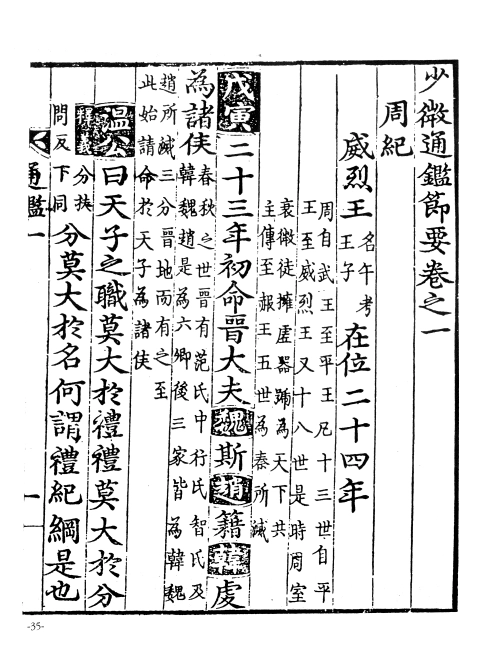 少微通鑑節要卷之一
周紀
威烈王名午考王子在位二十四年
周自武王至平王凡十三世自平
王至威烈王又十八世是時周室
衰微徒擁虛器號為天下共
主傳至赧王五世為秦所滅
戊寅二十三年初命晉大夫魏斯趙籍韓虔
為諸侯春秋之世晉有范氏中行氏智氏及
韓魏趙是為六卿後三家皆為韓魏
趙所滅三分晉地而有之至
此始請命於天子為諸侯
溫公曰天子之職莫大於禮禮莫大於分
分扶
問反下同分莫大於名何謂禮紀綱是也
通鑑一
一
-35-